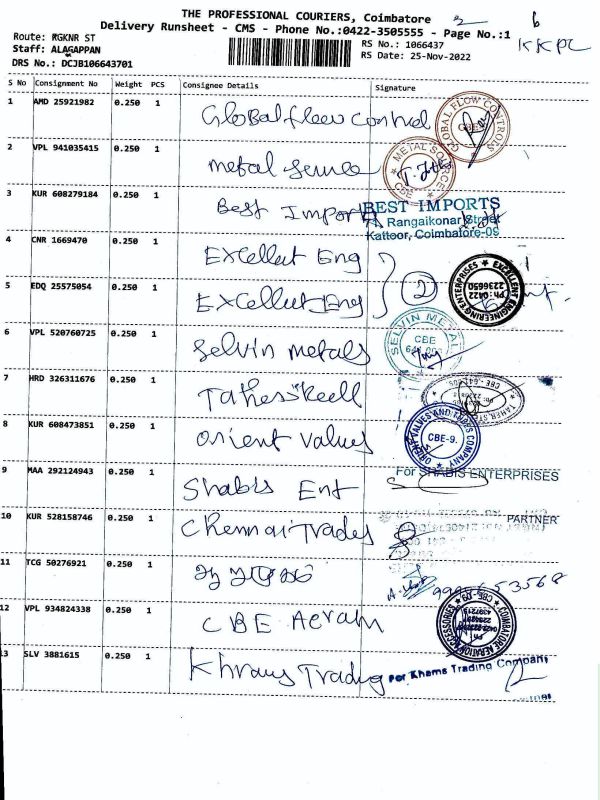 THE PROFESSIONAL COURIERS, Coimbatore
Delivery Runsheet - CMS - Phone No.:0422-3505555 - Page No.:1
6
KKPL
Route: RGKNR ST
Staff: ALAGAPPAN
DRS No.: DCJB106643701
RS No.: 1066437
RS Date: 25-Nov-2022
S No Consignment No Weight PCS Consignee Details Signature
1 AMD 25921982 0.250 1 Global flow control
GLOBAL FLOW CONTROLS
CBE
2 VPL 941035415 0.250 1 metal
METAL SOURCE
CBE
3 KUR 608279184 0.250 1 Best Import
BEST IMPORTS
Rangaikonar Street
Kattoor, Coimbatore-09
4 CNR 1669470 0.250 1 Excellent Eng
5 EDQ 25575054 0.250 1 Excellent Eng
2
EXCELLENT ENGINEERING ENTERPRISES
Ph: 0422
2236650
6 VPL 520760725 0.250 1 Selvin metals
SELVIN METAL
CBE
7 HRD 326311676 0.250 1
8 KUR 608473851 0.250 1 Orient Values
ORIENT VALVES AND TOOLS COMPANY
CBE-9.
9 MAA 292124943 0.250 1 Shabis Ent
For SHABIS ENTERPRISES
PARTNER
10 KUR 528158746 0.250 1 Chennai Trades
11 TCG 50276921 0.250 1
12 VPL 934824338 0.250 1 CBE Aeram
COIMBATORE AERATION ACCESSORIES
CBE-09
13 SLV 3881615 0.250 1 Khrans Trading
For Khams Trading Company